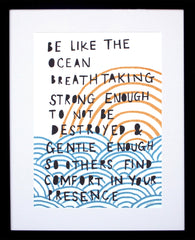 BE LIKE THE
OCEAN
BREATHTAKING.
STRONG ENOUGH
TO NOT BE
DESTROYED &
GENTLE ENOUGH
SO OTHERS FIND
COMFORT IN YOUR
PRESENCE